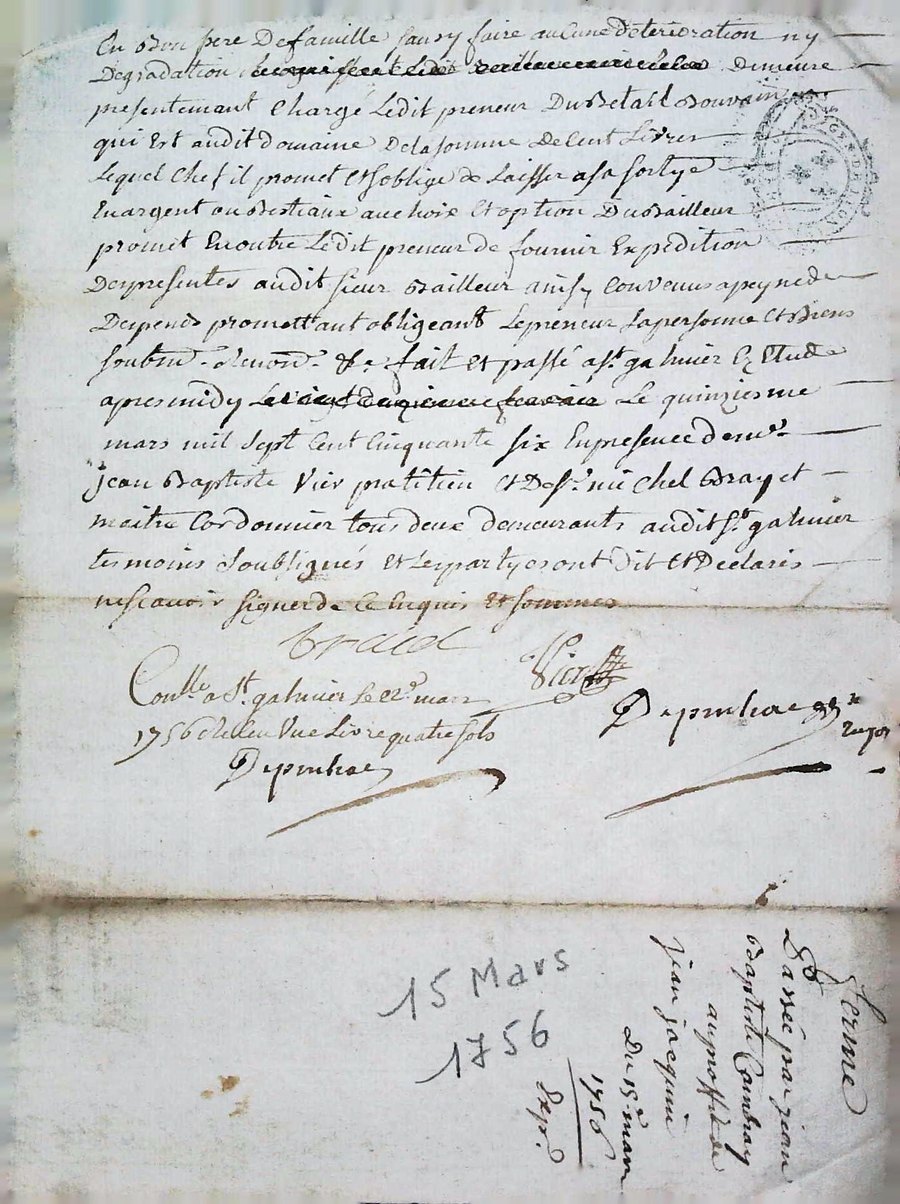 En bon pere De famille sans y faire aucune deterioration ny
Degradation Demeure
presentement Chargé Ledit preneur Du Betail Bouvain
qui Est audit Domaine De la somme De Cent Livres
Lequel Chef il promet et soblige de Laisser a sa sortye
En argent ou Bestiaux au choix Et option Du Bailleur
promet En outre Ledit preneur de fournir Expedition
Des presentes audit sieur Bailleur ainsy Convenus a peyne de
Despends promettant obligeant Le preneur sa personne Et Biens
soubm. Renon. &c. fait Et passé a St. galmier Ez Etude
apres midy Le quinziesme
mars mil sept Cent Cinquante six En presence de me.
jean Baptiste Vier pratitien Et De sr. michel Brayet
maitre Cordonnier tous deux demeurants audit St. galmier
tesmoins soubsignés Et Les partyes ont Dit Et Declarés
ne scavoir signer de Ce Enquis Et sommés
Vier
Conlle. a St. galmier le 22e. mars
1756 Receu Une Livre quatre sols
15 Mars
1756
ferme
Passée par jean
Baptiste Combray
au proffit de
jean jacquin
Du 15e. mars
1756
Exp.